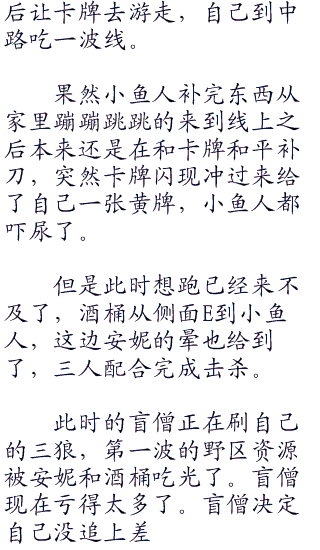 后让卡牌去游走，自己到中
路吃一波线。
果然小鱼人补完东西从
家里蹦蹦跳跳的来到线上之
后本来还是在和卡牌和平补
刀，突然卡牌闪现冲过来给
了自己一张黄牌，小鱼人都
吓尿了。
但是此时想跑已经来不
及了，酒桶从侧面E到小鱼
人，这边安妮的晕也给到
了，三人配合完成击杀。
此时的盲僧正在刷自己
的三狼，第一波的野区资源
被安妮和酒桶吃光了。盲僧
现在亏得太多了。盲僧决定
自己没追上差